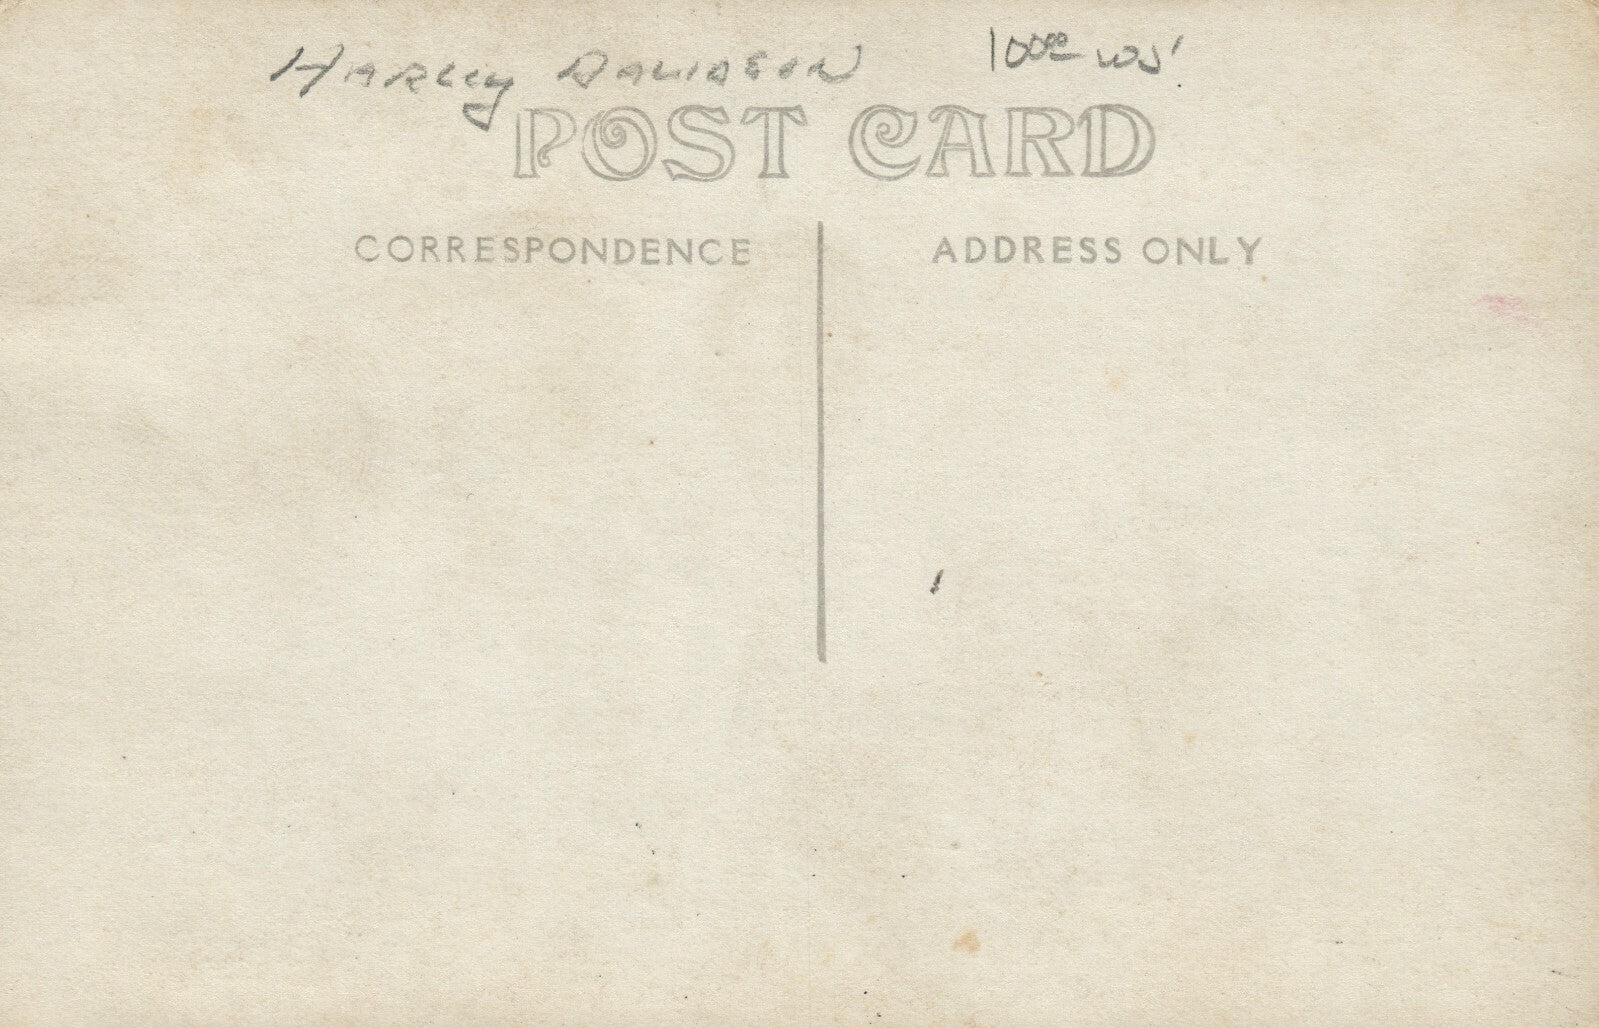 HARLEY DAVIDSON 100
POST CARD
CORRESPONDENCE ADDRESS ONLY